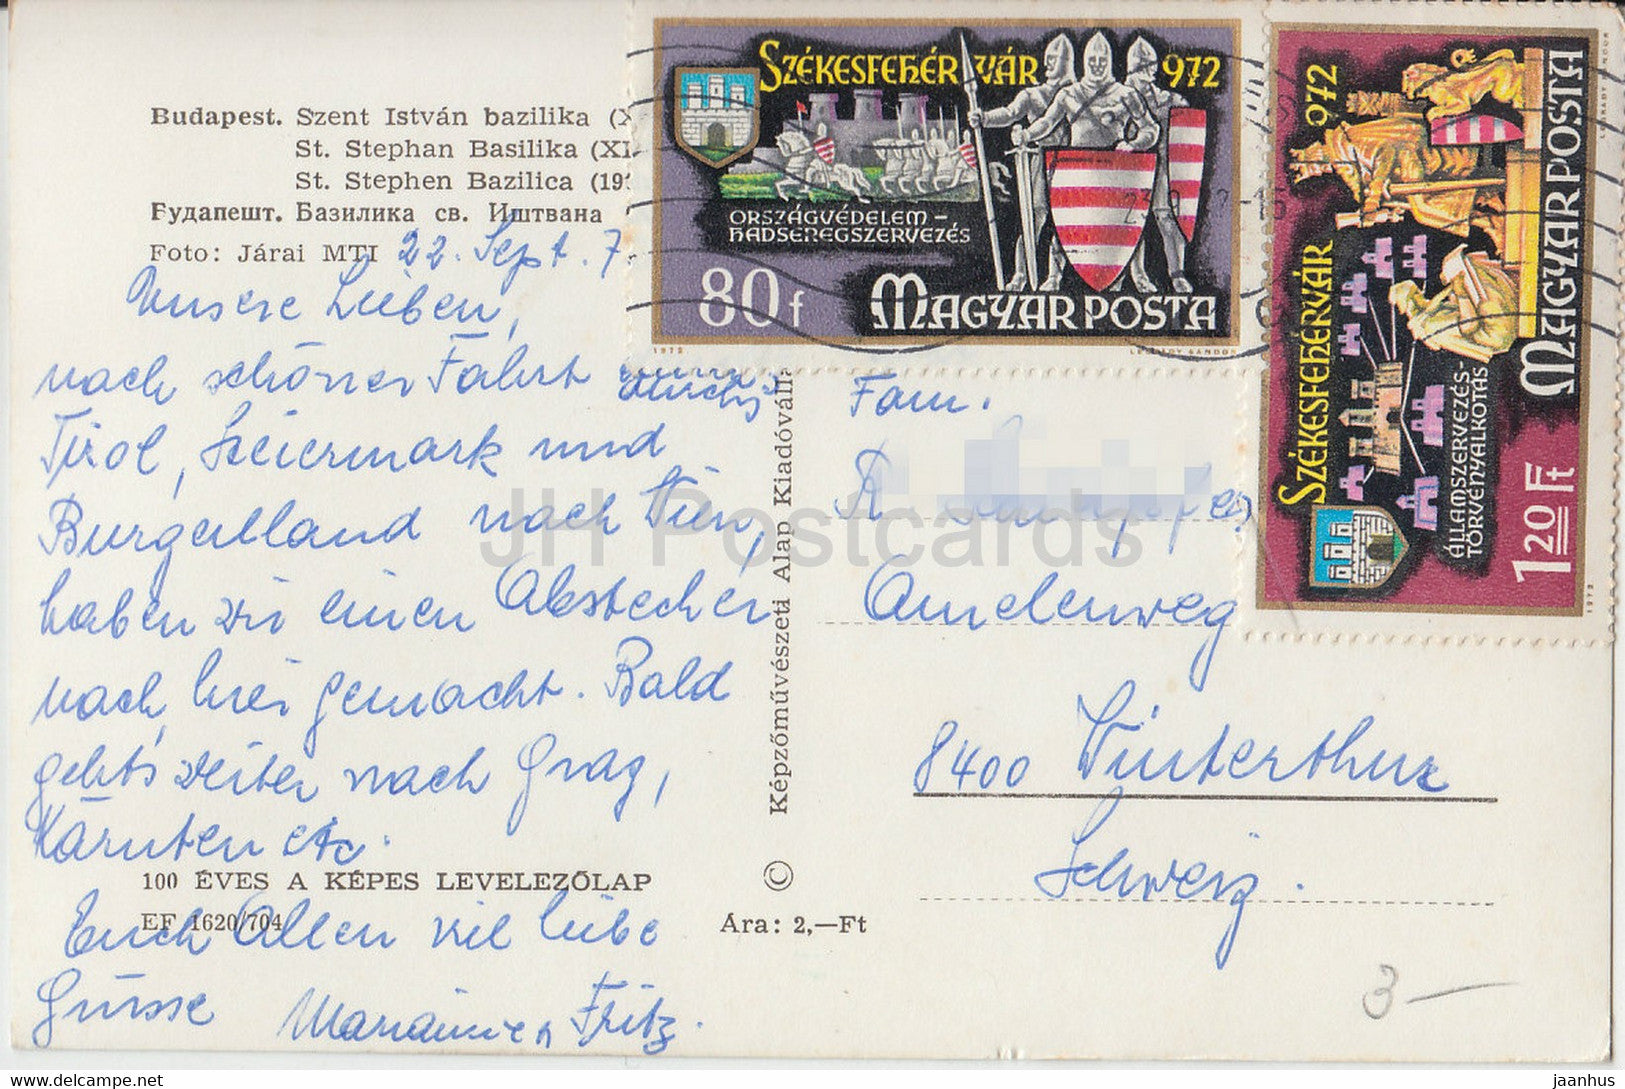 Budapest. Szent István bazilika (X
St. Stephan Basilika (XI
St. Stephen Bazilica (19
Будапешт. Базилика св. Иштвана
Foto: Járai MTI
22. Sept. 7
Unsere Lieben,
nach schöner Fahrt durchs
Tirol, Steiermark und
Burgenland nach Wien,
haben wir einen Abstecher
nach hier gemacht. Bald
geht's weiter nach Graz,
Kärnten etc.
100 ÉVES A KÉPES LEVELEZŐLAP
EF 1620/704
Ára: 2,—Ft
Euch Allen viel liebe
Grüsse Marianne & Fritz.
© Képzőművészeti Alap Kiadóváll
SZÉKESFEHÉRVÁR 972
ORSZÁGVÉDELEM-
HADSEREGSZERVEZÉS
80 f MAGYAR POSTA
1972 LÉGRÁDY SÁNDOR
SZÉKESFEHÉRVÁR 972
ÁLLAMSZERVEZÉS-
TÖRVÉNYALKOTÁS
1 20 Ft MAGYAR POSTA
1972 LÉGRÁDY SÁNDOR
Fam.
R
Amelenweg
8400 Winterthur
Schweiz.
3—
JH Postcards
jaanhus @ delcampe.net